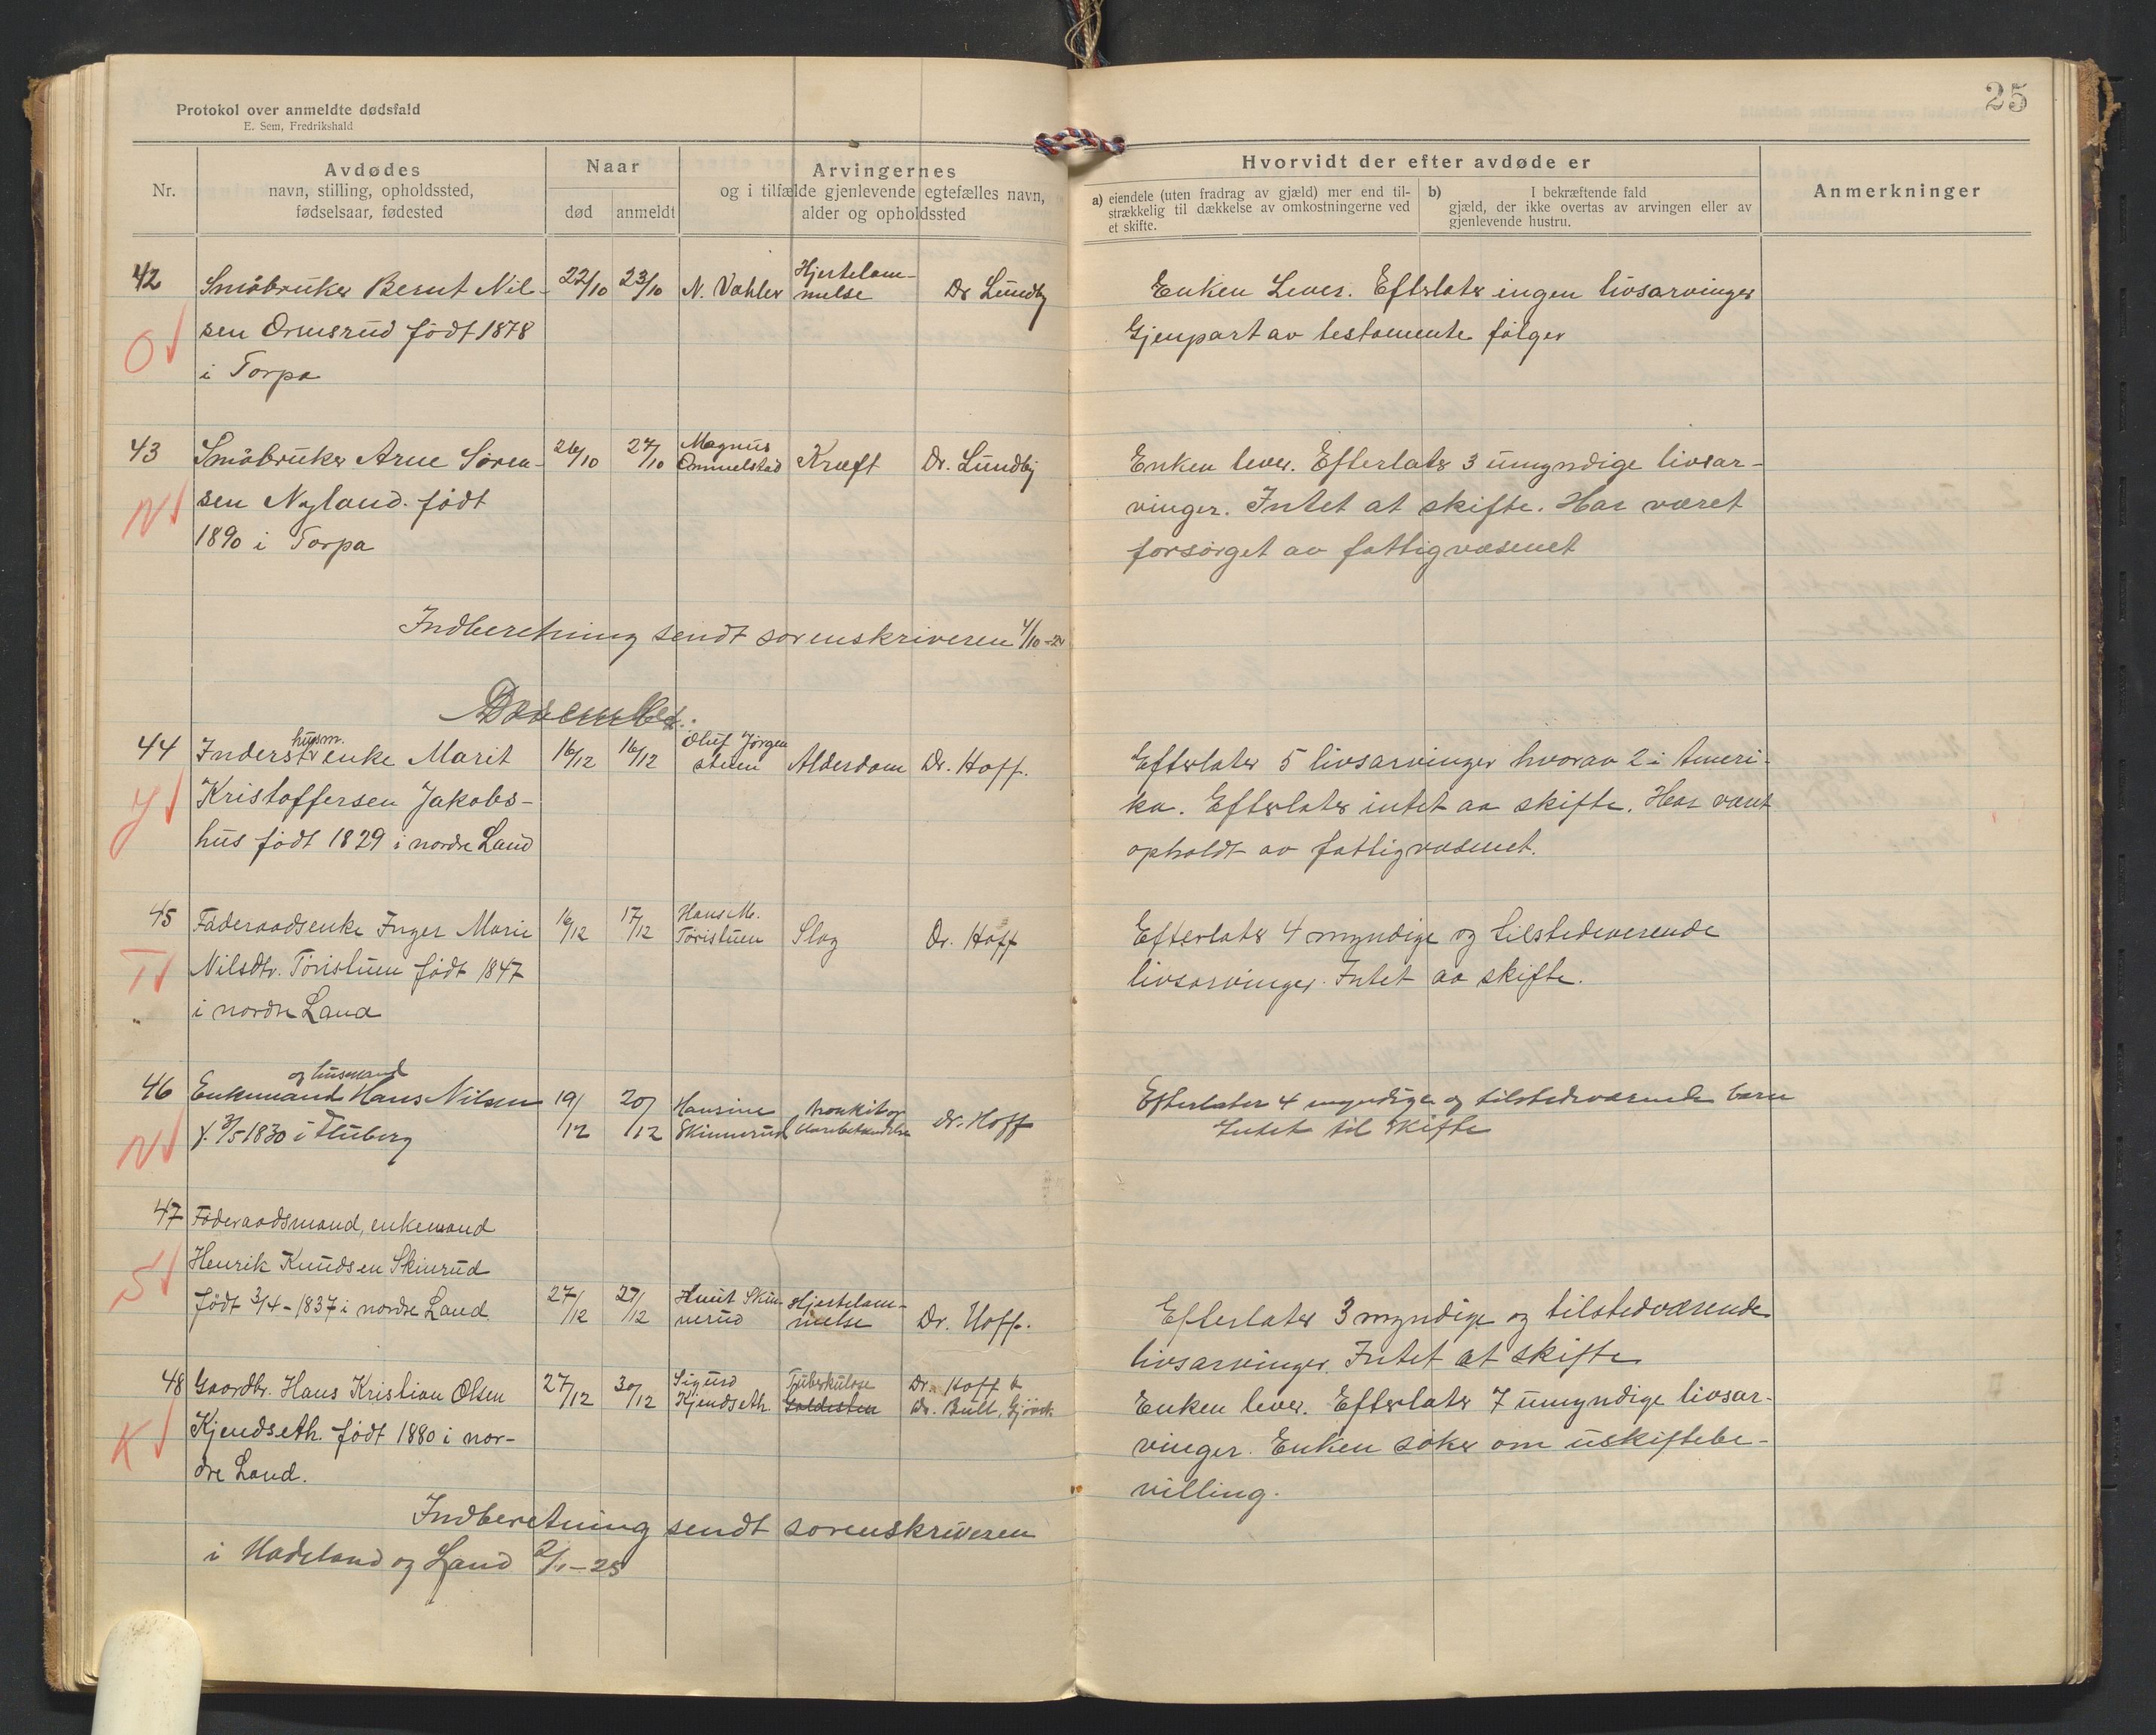 25
Protokol over anmeldte dødsfald
E. Sem, Fredrikshald
Nr.
Avdødes
navn, stilling, opholdssted,
fødselsaar, fødested
Naar
død anmeldt
Arvingernes
og i tilfælde gjenlevende egtefælles navn,
alder og opholdssted
Hvorvidt der efter avdøde er
a) eiendele (uten fradrag av gjæld) mer end til-
strækkelig til dækkelse av omkostningerne ved
et skifte.
b) I bekræftende fald
gjæld, der ikke overtas av arvingen eller av
gjenlevende hustru.
Anmerkninger
42 Småbruker Bernt Nil- 22/10 23/10 N. Vahler Hjertelam-
melse Dr Lundby Enken Lever. Efterlater ingen livsarvinger
O sen Ormsrud født 1878 Gjenpart av testamente følger
i Torpa
43 Småbruker Arne Søren- 26/10 27/10 Magnus
Ommelstad Kræft Dr. Lundby Enken lever. Efterlater 3 umyndige livsar-
N sen Nyland. født vinger. Intet at skifte. Har været
1890 i Torpa forsørget av fattigvæsenet
Indberetning sendt sorenskriveren 4/10-24
December.
44 Inderst husm. enke Marit 16/12 16/12 Oluf Jørgen
stuen Alderdom Dr. Hoff. Efterlater 5 livsarvinger hvorav 2 i Ameri-
J Kristoffersen Jakobs- ka. Efterlater intet aa skifte. Har vært
hus født 1829 i nordre Land opholdt av fattigvæsenet.
45 Føderaadsenke Inger Marie 16/12 17/12 Hans M.
Toristuen Slag Dr. Hoff Efterlater 4 myndige og tilstedeverende
T Nilsdtr. Toristuen født 1847 livsarvinger. Intet aa skifte.
i nordre Land
46 Enkemand og husmand Hans Nilsen 19/12 20/12 Hansine
Skinnerud Bronkit og
Dr. Hoff Efterlater 4 myndige og tilstedeværende barn
N f. 3/5 1830 i Fluberg Intet til skifte
47 Føderaadsmand, enkemand
S Henrik Knudsen Skinrud
født 3/4-1837 i nordre Land. 27/12 29/12 Knut Skin-
nerud Hjertelam-
melse Dr. Hoff. Efterlater 3 myndige og tilstedværende
livsarvinger. Intet at skifte
48 Gaardbr. Hans Kristian Olsen 27/12 30/12 Sigurd
Kjendseth. Tuberkulose
Galdesten Dr. Hoff &
Dr. Bull, Gjøvik Enken lever. Efterlater 7 umyndige livsar-
K Kjendseth. født 1880 i nor- vinger. Enken søker om uskiftebe-
dre Land. villing.
Indberetning sendt sorenskriveren
i Hadeland og Land 2/1-25